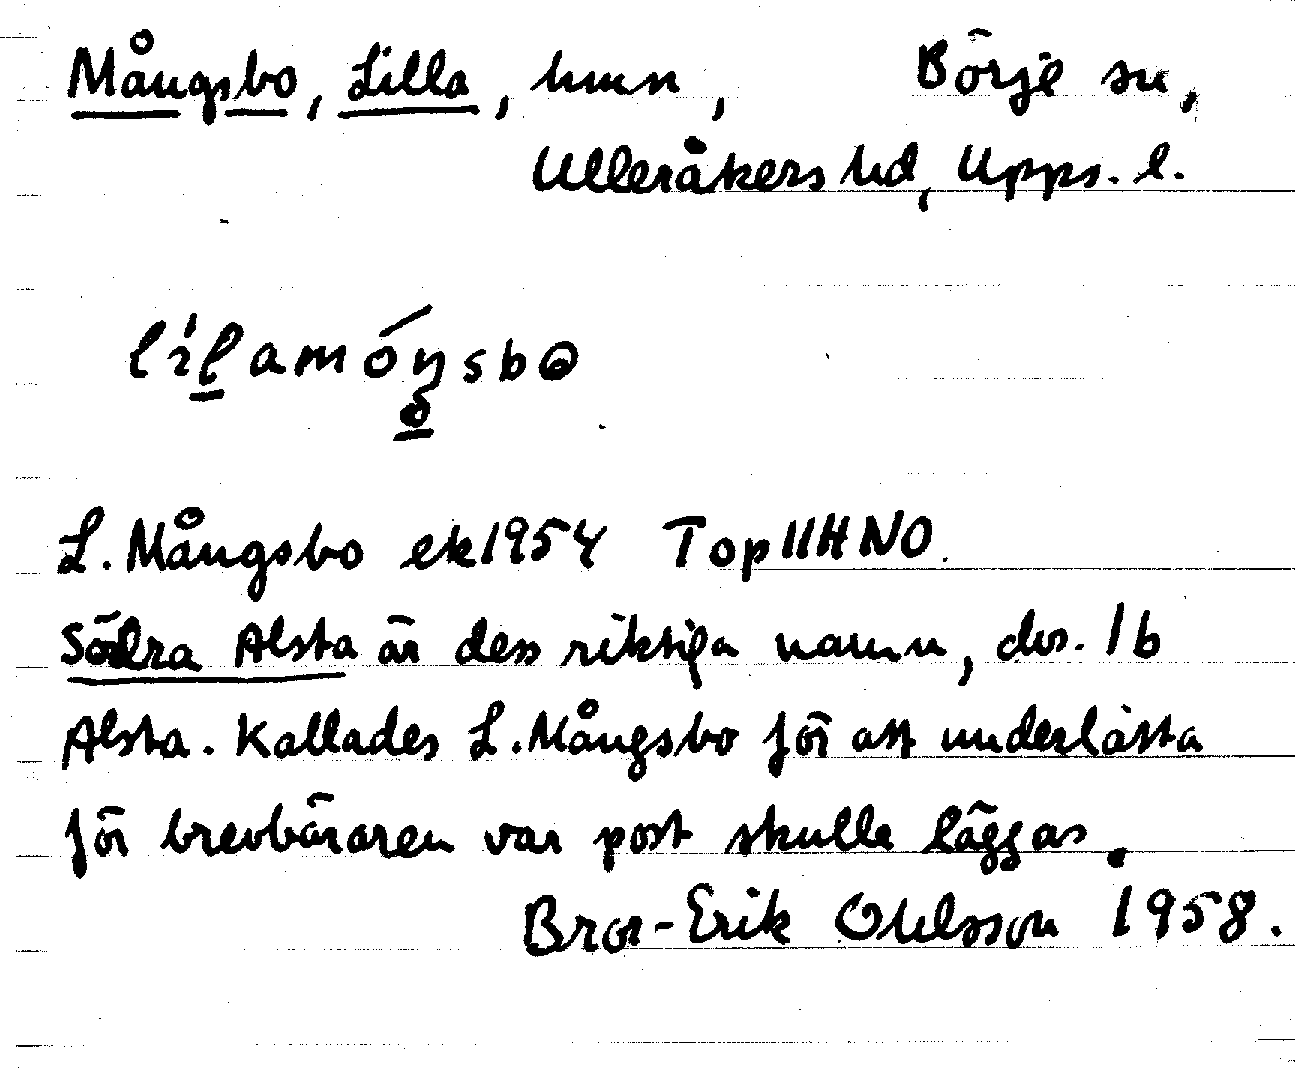 Mångsbo, Lilla, hmn, Börje sn,
Ulleråkers hd, Upps. l.
lílamóŋsbɷ
L. Mångsbo ek 1954 Top 11H NO.
Södra Alsta är dess riktiga namn, dvs. 1b
Alsta. Kallades L. Mångsbo för att underlätta
för brevbäraren var post skulle läggas.
Bror-Erik Ohlsson 1958.